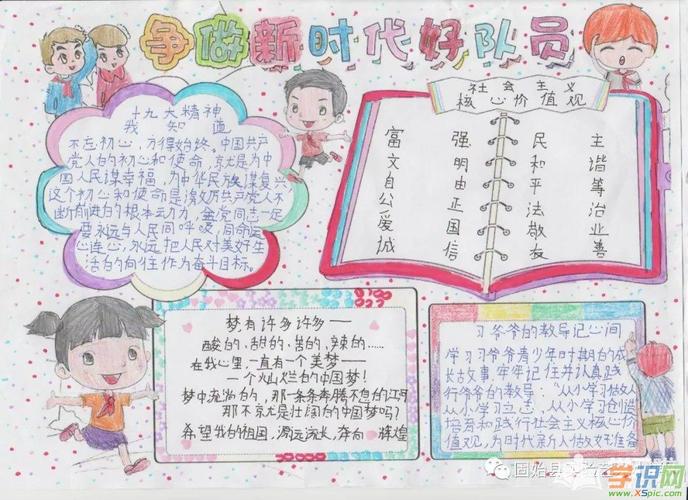 争做新时代好队员
十九大精神
我知道
不忘初心，方得始终，中国共产
党人的初心和使命，就是为中
国人民谋幸福，为中华民族谋复兴
这个初心和使命是激励共产党人不
断前进的根本动力，全党同志一定
要永远与人民同呼吸，同命运
心连心，永远把人民对美好生
活的向往作为奋斗目标。
社会主义
核心价值观
富强民主
文明和谐
自由平等
公正法治
爱国敬业
诚信友善
梦有许多许多——
酸的、甜的、苦的、辣的……
在我心里，一直有一个美梦——
一个灿烂的中国梦！
那不就是壮阔的中国梦吗？
希望我的祖国，源远流长，奔向辉煌
习爷爷的教导记心间
学习习爷爷青少年时期的成
长故事，牢牢记住并认真践
行爷爷的教导："从小学做人
从小学立志，从小学创造
培育和践行社会主义核心价
值观，为时代新人做好准备
固始县
学识网
www.xspic.com